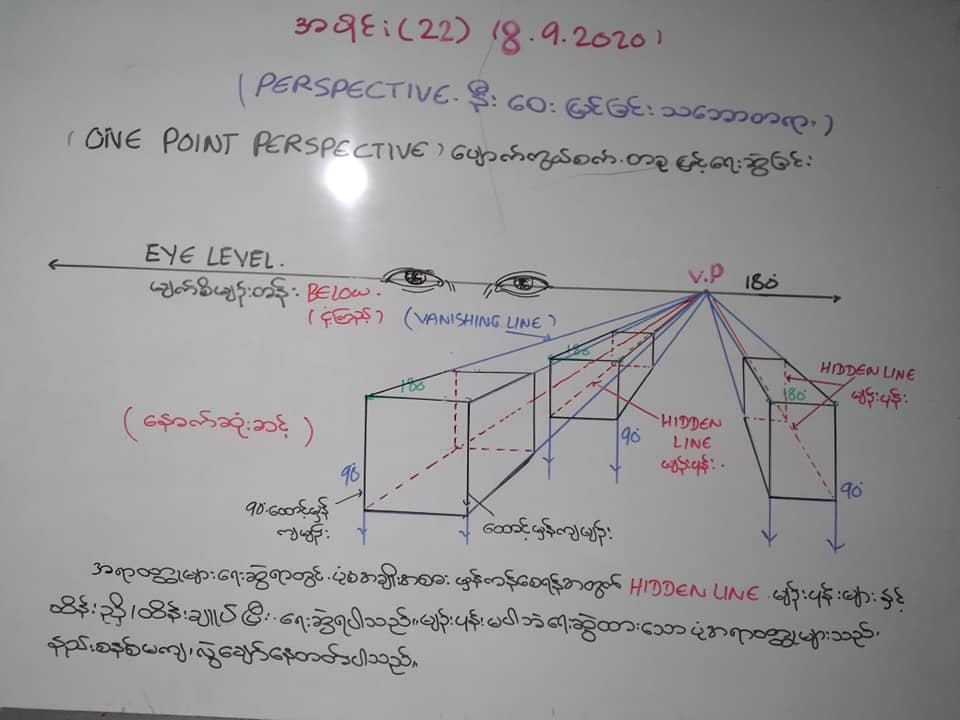 အပိုင်း (22) (8.9.2020)
(PERSPECTIVE. နီး ဝေး မြင်ခြင်း သဘောတရား)
(ONE POINT PERSPECTIVE) ပျောက်ကွယ်စက်.တခု ဖြင့်ရေးဆွဲခြင်း
EYE LEVEL.
မျက်စိမျဉ်းတန်း.
BELOW.
(ငုံ့ကြည့်)
(VANISHING LINE)
V.P
180
180
180
180
HIDDEN LINE
မျဉ်းပုန်း
HIDDEN
LINE
မျဉ်းပုန်း.
(နောက်ဆုံးဆင့်)
90
90
90
90 ထောင့်မှန်
ကျမျဉ်း
ထောင့်မှန်ကျမျဉ်း
အရာဝတ္ထုများရေးဆွဲရာတွင်.ပုံစံအချိုးအစား မှန်ကန်စေရန်အတွက် HIDDEN LINE မျဉ်းပုန်းများ နှင့်
ထိန်းညှိ၊ထိန်းချုပ်ပြီး.ရေးဆွဲရပါသည်။မျဉ်းပုန်းမပါဘဲရေးဆွဲထားသောပုံအရာဝတ္ထုများသည်.
နည်းစနစ်မကျ၊လွဲချော်နေတတ်ပါသည်။